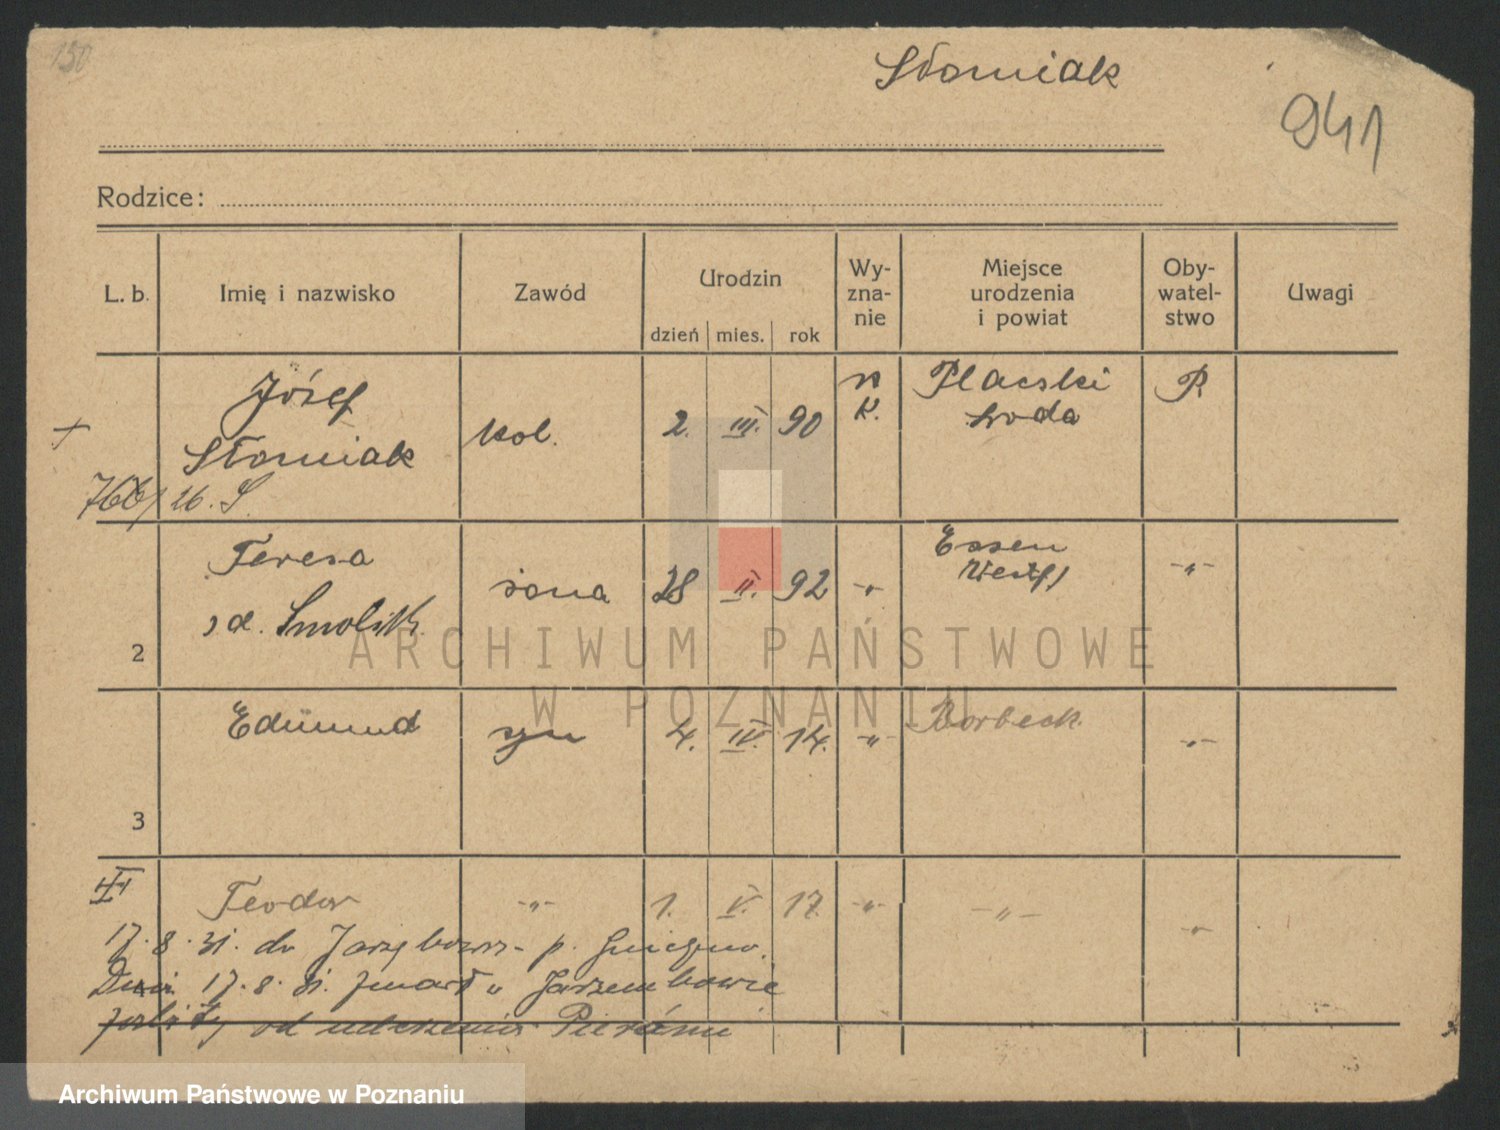 130
Słomiak
941
Rodzice:
L. b.
Imię i nazwisko
Zawód
Urodzin
dzień mies. rok
Wy-
zna-
nie
Miejsce
urodzenia
i powiat
Oby-
watel-
stwo
Uwagi
Józef
Słomiak
kol.
2. III. 90
r
k.
Placzki
środa
P.
26. S.
Teresa
zd. Smolik
żona
28 II. 92
-„-
Essen
Westf
-„-
2
Edmund
syn
4. IV. 14.
-„-
Borbeck
-„-
3
Teodor
-„-
1. V. 17.
-„-
-„-
-„-
17. 8. 31. do p. Gniezno.
17. 8. 31. zmarł w Jarzembowie
od uderzenia
ARCHIWUM PAŃSTWOWE
W POZNANIU
Archiwum Państwowe w Poznaniu